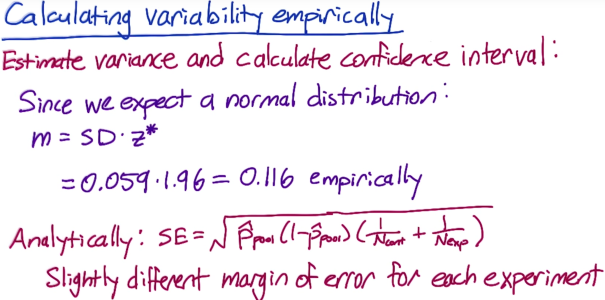 Calculating variability empirically
Estimate variance and calculate confidence interval:
Since we expect a normal distribution:
m = SD · z*
= 0.059 · 1.96 = 0.116 empirically
Analytically: SE = √ p̂pool (1-p̂pool) (1/Ncont + 1/Nexp)
Slightly different margin of error for each experiment